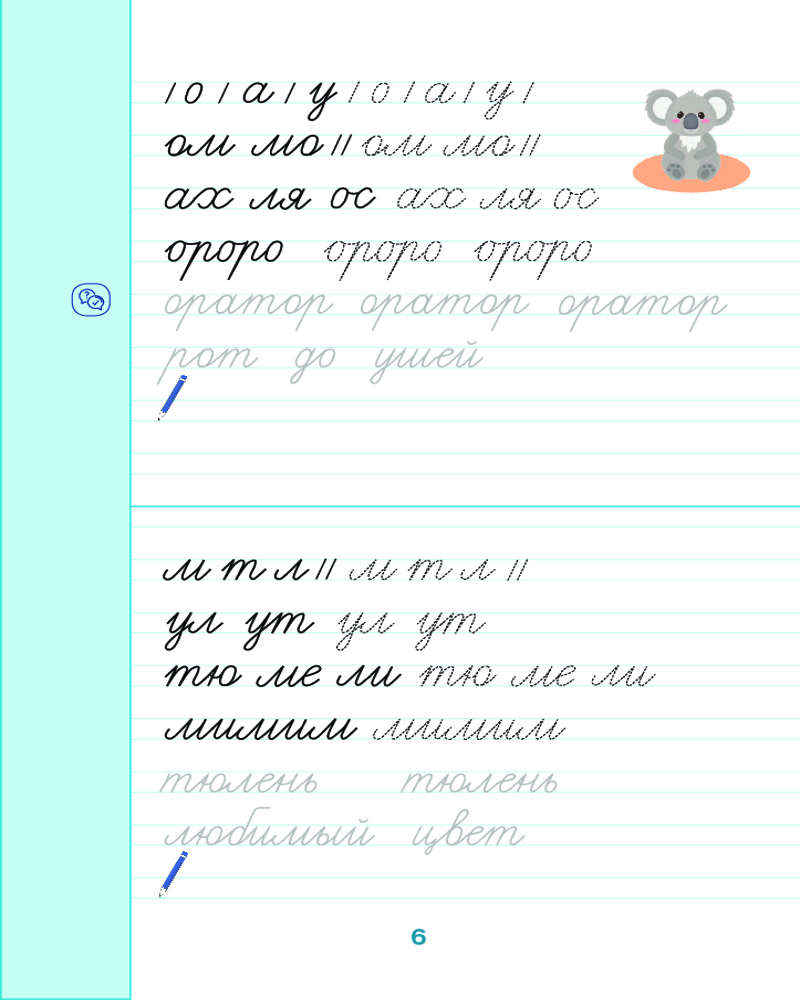 / о / а / у / о / а / у /
ом мо // ом мо //
ах ля ос ах ля ос
ороро ороро ороро
оратор оратор оратор
рот до ушей
м т л // м т л //
ул ут ул ут
тю ме ли тю ме ли
мимим мимим
тюлень тюлень
любимый цвет
6